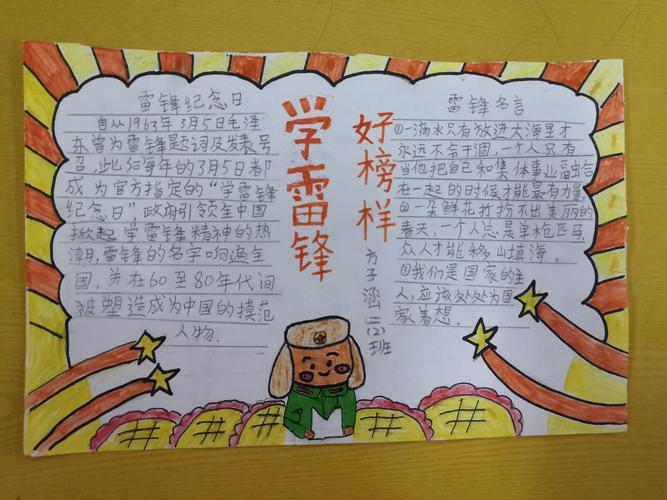 雷锋纪念日
自从1963年3月5日毛泽
东曾为雷锋题词及发表号
召,此后每年的3月5日都
成为官方指定的“学雷锋
纪念日”,政府引领全中国
掀起学雷锋精神的热
潮,雷锋的名字响遍全
国,并在60至80年代间
被塑造成为中国的模范
人物.
学雷锋
好榜样
方子涵二(2)班
雷锋名言
①一滴水只有放进大海里才
永远不会干涸,一个人只有
当他把自己和集体事业融合
在一起的时候才能最有力量
②一朵鲜花打扮不出美丽的
春天,一个人总是单枪匹马,
众人才能移山填海.
③我们是国家的主
人,应该处处为国
家着想.